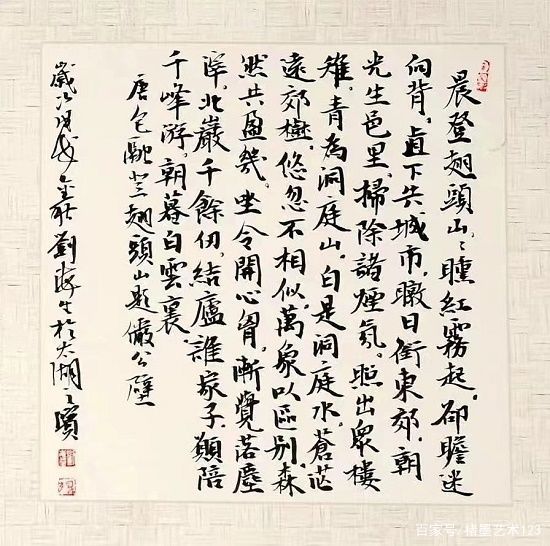 晨登翅頭山，〻曛紅霧起．卻瞻迷
向背．直下失城市．暾日銜東郊．朝
光生邑里．掃除諸煙氛．照出眾樓
雉．青為洞庭山．白是洞庭水．蒼茫
遠郊樹．悠忽不相似．萬象以區別．森
然共盈幾．坐令開心胸．漸覺落塵
滓．北巖千餘仞．結廬誰家子．願陪
千峰游．朝暮白雲裏．
唐包融登翅頭山題儼公壁
歲次戊戌金秋劉生於太湖之濱
百家号/楮墨艺术123